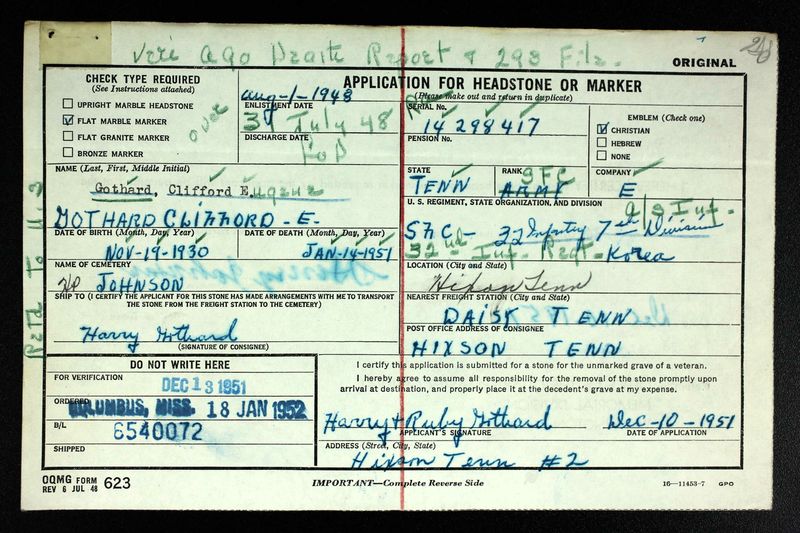 Veri AGO Death Report & 293 File.
ORIGINAL
CHECK TYPE REQUIRED
(See Instructions attached)
UPRIGHT MARBLE HEADSTONE
FLAT MARBLE MARKER
FLAT GRANITE MARKER
BRONZE MARKER
APPLICATION FOR HEADSTONE OR MARKER
(Please make out and return in duplicate)
Aug-1-1948
ENLISTMENT DATE
31 July 48
DISCHARGE DATE
SERIAL No.
14 298 417
PENSION No.
EMBLEM (Check one)
CHRISTIAN
HEBREW
NONE
NAME (Last, First, Middle Initial)
Gothard, Clifford Eugene
GOTHARD CLIFFORD - E.
STATE
TENN
RANK
SFC
ARMY
COMPANY
E
U. S. REGIMENT, STATE ORGANIZATION, AND DIVISION
SFC - 32 Infantry 7th Division
32nd Inf. Regt - Korea
DATE OF BIRTH (Month, Day, Year)
NOV-19-1930
DATE OF DEATH (Month, Day, Year)
JAN-14-1951
NAME OF CEMETERY
JOHNSON
LOCATION (City and State)
Hixson Tenn
SHIP TO (I CERTIFY THE APPLICANT FOR THIS STONE HAS MADE ARRANGEMENTS WITH ME TO TRANSPORT
THE STONE FROM THE FREIGHT STATION TO THE CEMETERY)
Harry Gothard
(SIGNATURE OF CONSIGNEE)
NEAREST FREIGHT STATION (City and State)
DAISK TENN
POST OFFICE ADDRESS OF CONSIGNEE
HIXSON TENN
DO NOT WRITE HERE
FOR VERIFICATION
DEC 13 1951
ORDERED
COLUMBUS, MISS. 18 JAN 1952
B/L
6540072
SHIPPED
I certify this application is submitted for a stone for the unmarked grave of a veteran.
I hereby agree to assume all responsibility for the removal of the stone promptly upon
arrival at destination, and properly place it at the decedent's grave at my expense.
Harry & Ruby Gothard
APPLICANT'S SIGNATURE
Dec-10-1951
DATE OF APPLICATION
ADDRESS (Street, City, State)
Hixson Tenn #2
OQMG FORM 623
REV 6 JUL 48
IMPORTANT—Complete Reverse Side
16—11453-7 GPO